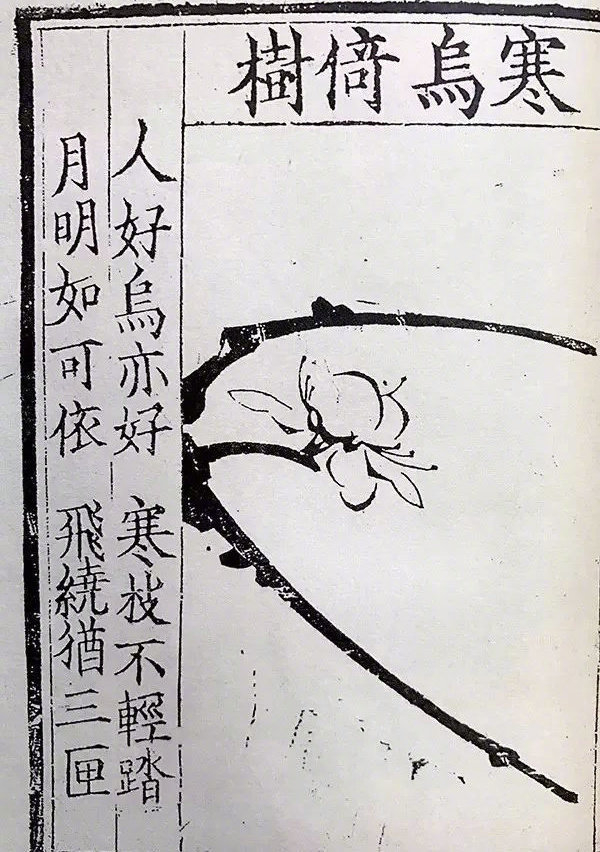 寒烏倚樹
人好烏亦好 寒枝不輕踏
月明如可依 飛繞猶三匝